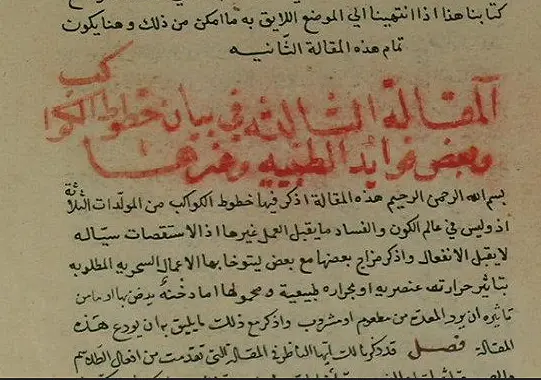 كتابنا هذا اذا انتهينا الي الموضع اللايق به ما امكن من ذلك وهنا يكون
تمام هذه المقالة الثانيه
المقالة الثالثه في بيان خطوط الكواكب
وبعض فوايد الطبيه وغيرها
بسم الله الرحمن الرحيم هذه المقالة اذكر فيها خطوط الكواكب من المولدات الثلاثة
اذ وليس في عالم الكون والفساد ما يقبل العمل غيرها اذ الاستقصات سياله
لا يقبل الانفعال واذكر مزاج بعضها مع بعض ليتوخا بها الاعمال السحريه المطلوبه
بتاثير حرارته عنصريه او بحراره طبيعية ومحولها اما دخنة يدخن بها او ما من
تاثيره ان يرد المعدة من مطعوم او مشروب واذكر مع ذلك ما يليق به ان يودع هذه
المقالة فصل قد ذكرنا المقالة التي تقدمت من افعال